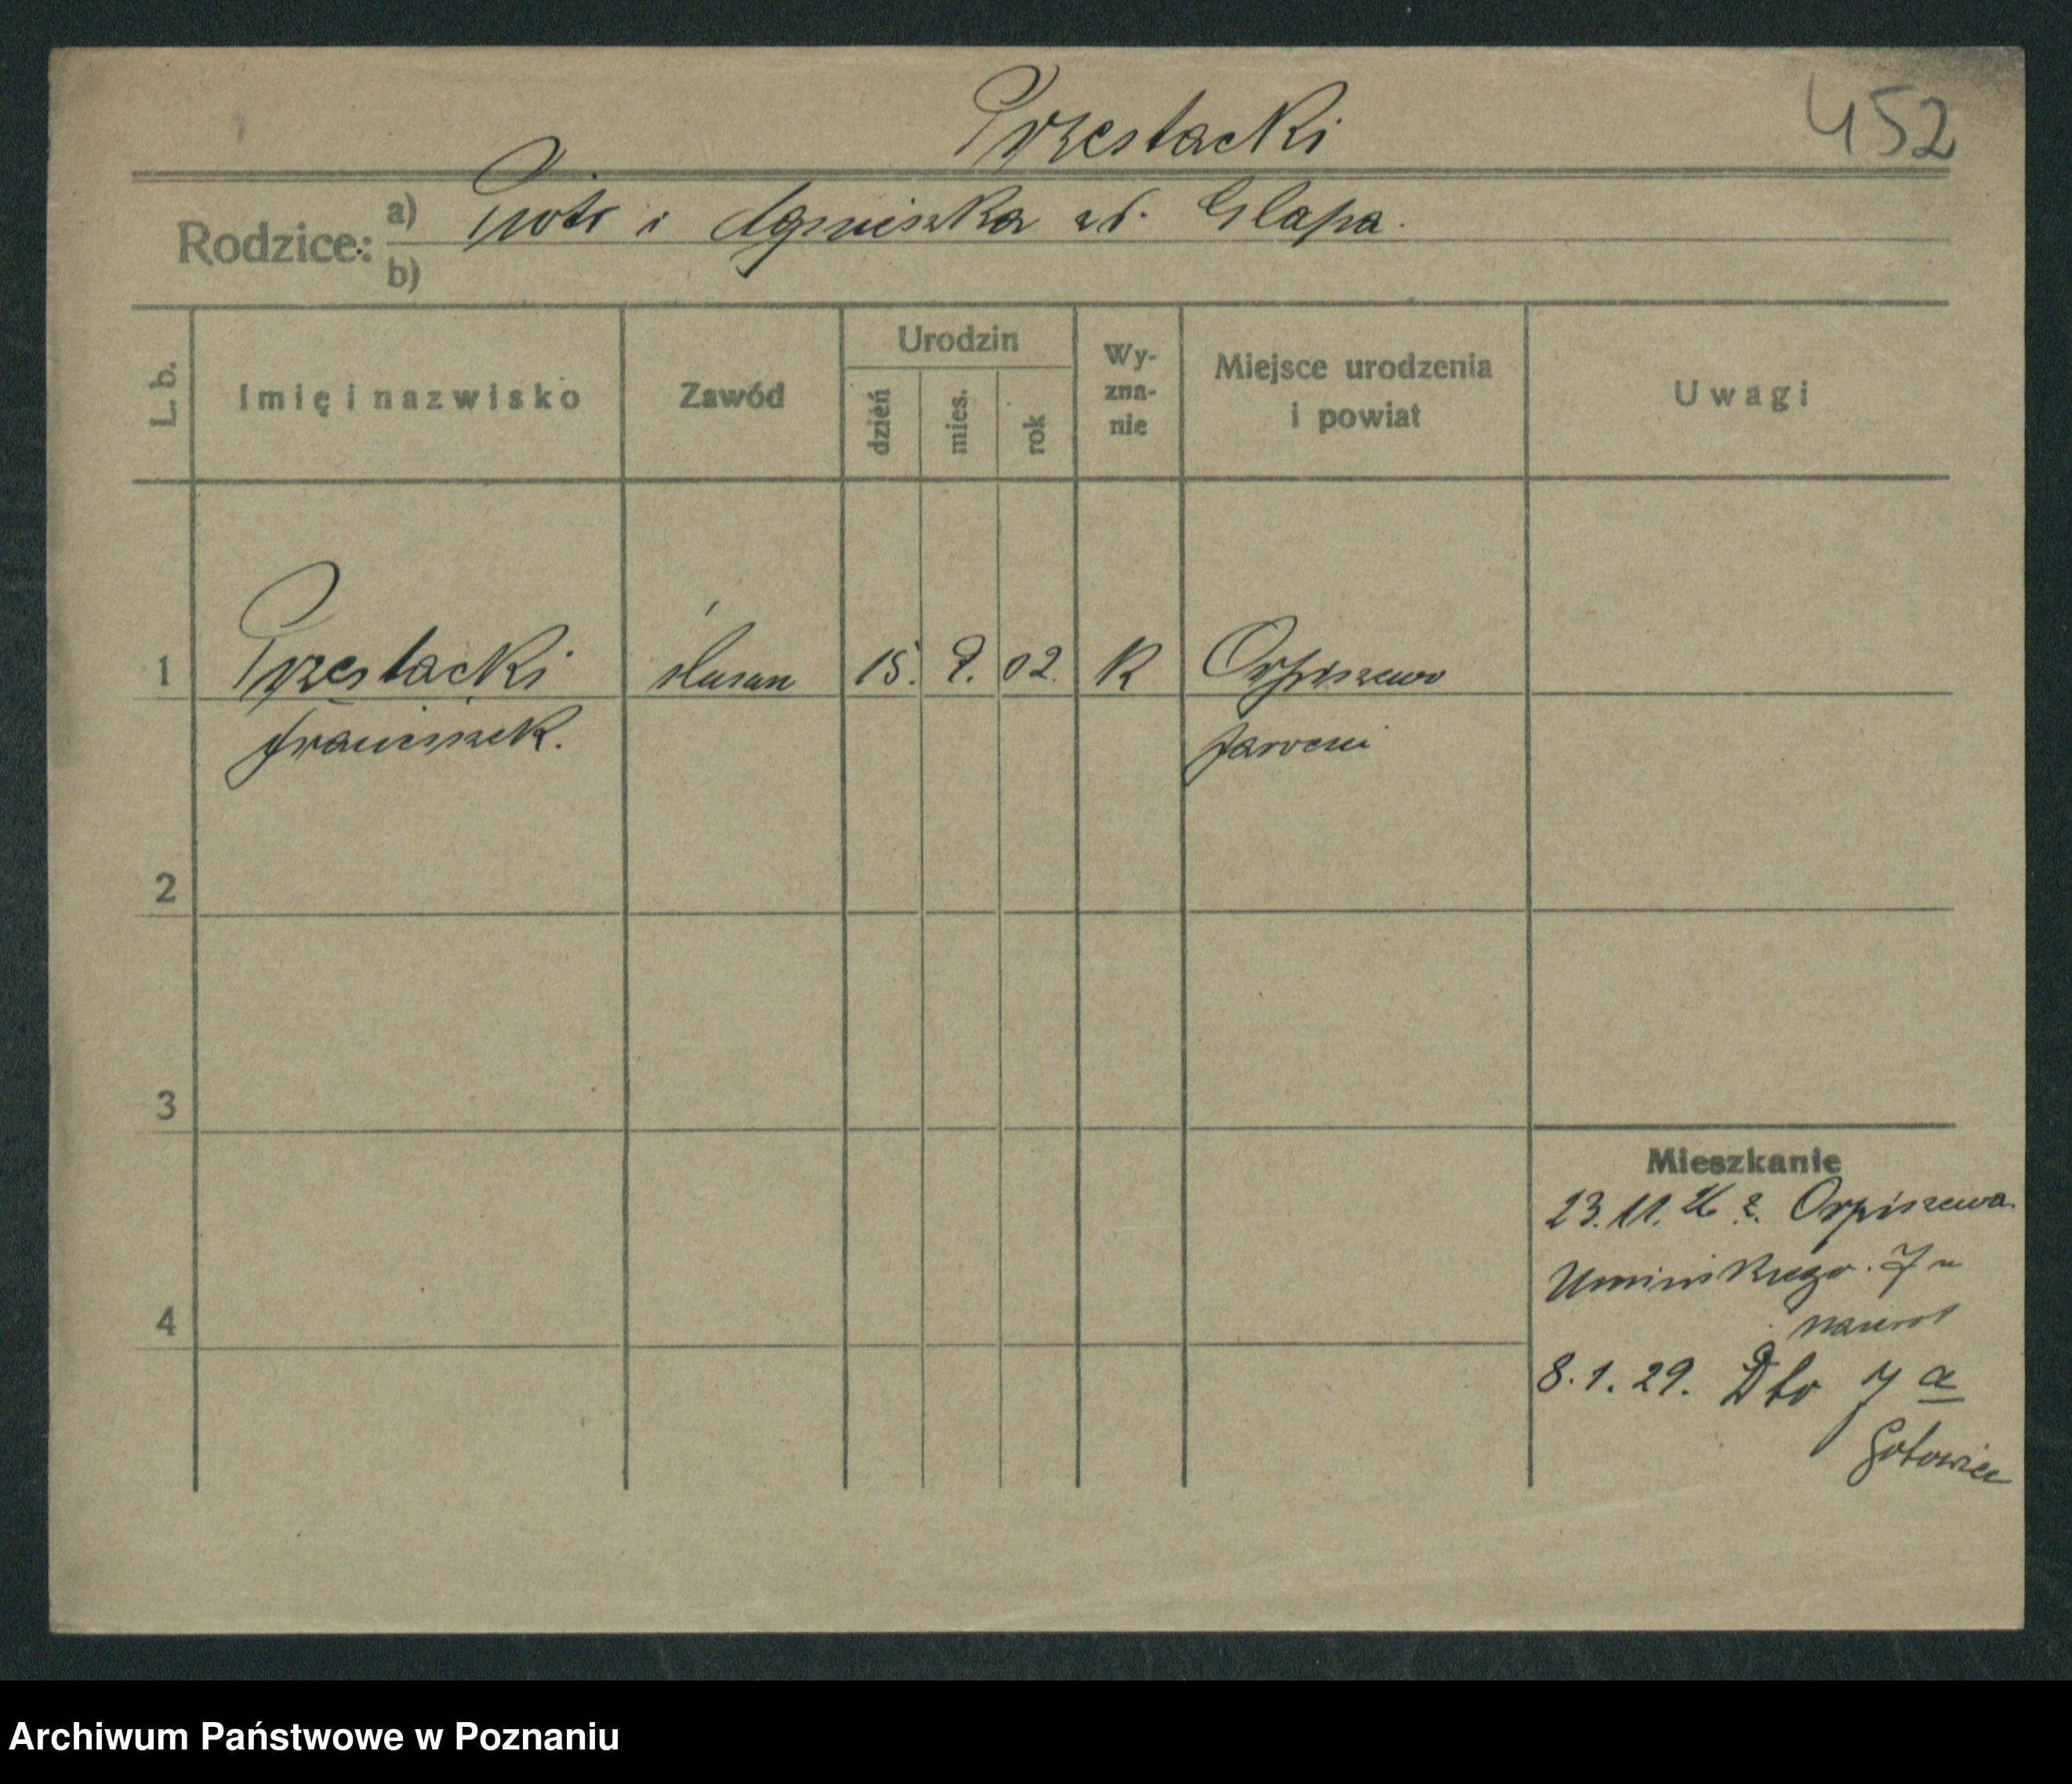 Przestacki
452
Rodzice:
a) Piotr i Agnieszka zd. Glapa.
b)
L. b.
Imię i nazwisko
Zawód
Urodzin
dzień
mies.
rok
Wy-
zna-
nie
Miejsce urodzenia
i powiat
Uwagi
1 Przestacki 15. 02. K Orpiszewo
Franciszek.
2
3
4
Mieszkanie
23. 11. 26 z. Orpiszewa.
Umińskiego. 7 u
Nawrot
8. 1. 29. Dto 7 a
Gotowiec
Archiwum Państwowe w Poznaniu